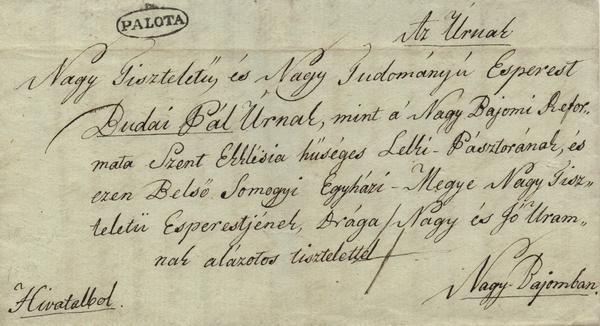 PALOTA
Az Úrnak
Nagy Tiszteletű, és Nagy Tudományú Esperest
Dudai Pál Úrnak, mint á Nagy Bajomi Refor-
mata Szent Ekklésia hűséges Lelki-Pasztorának, és
ezen Belső Somogyi Egyházi-Megye Nagy Tisz-
teletű Esperestjének, Drága Nagy és Jó Uram-
nak alázotos tisztelettel
Nagy-Bajomban.
Hivatalbol.